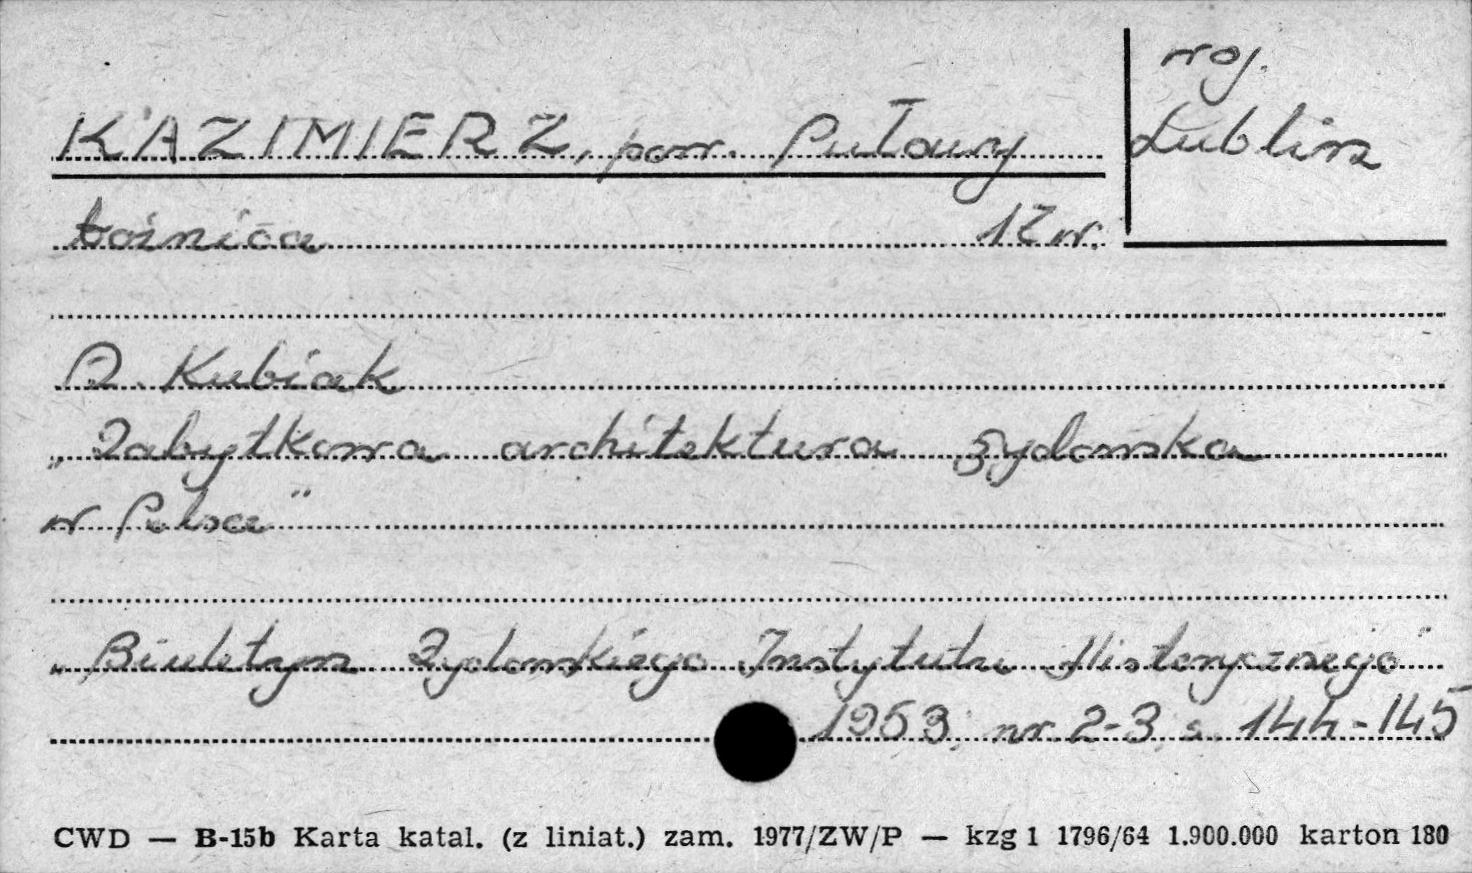 woj.
Lublin
KAZIMIERZ, pow. Puławy
bożnica 17 w.
A. Kubiak
„Zabytkowa architektura żydowska
w Polsce"
„Biuletyn Żydowskiego Instytutu Historycznego"
1953, nr 2-3, s. 144-145
CWD — B-15b Karta katal. (z liniat.) zam. 1977/ZW/P — kzg 1 1796/64 1.900.000 karton 180